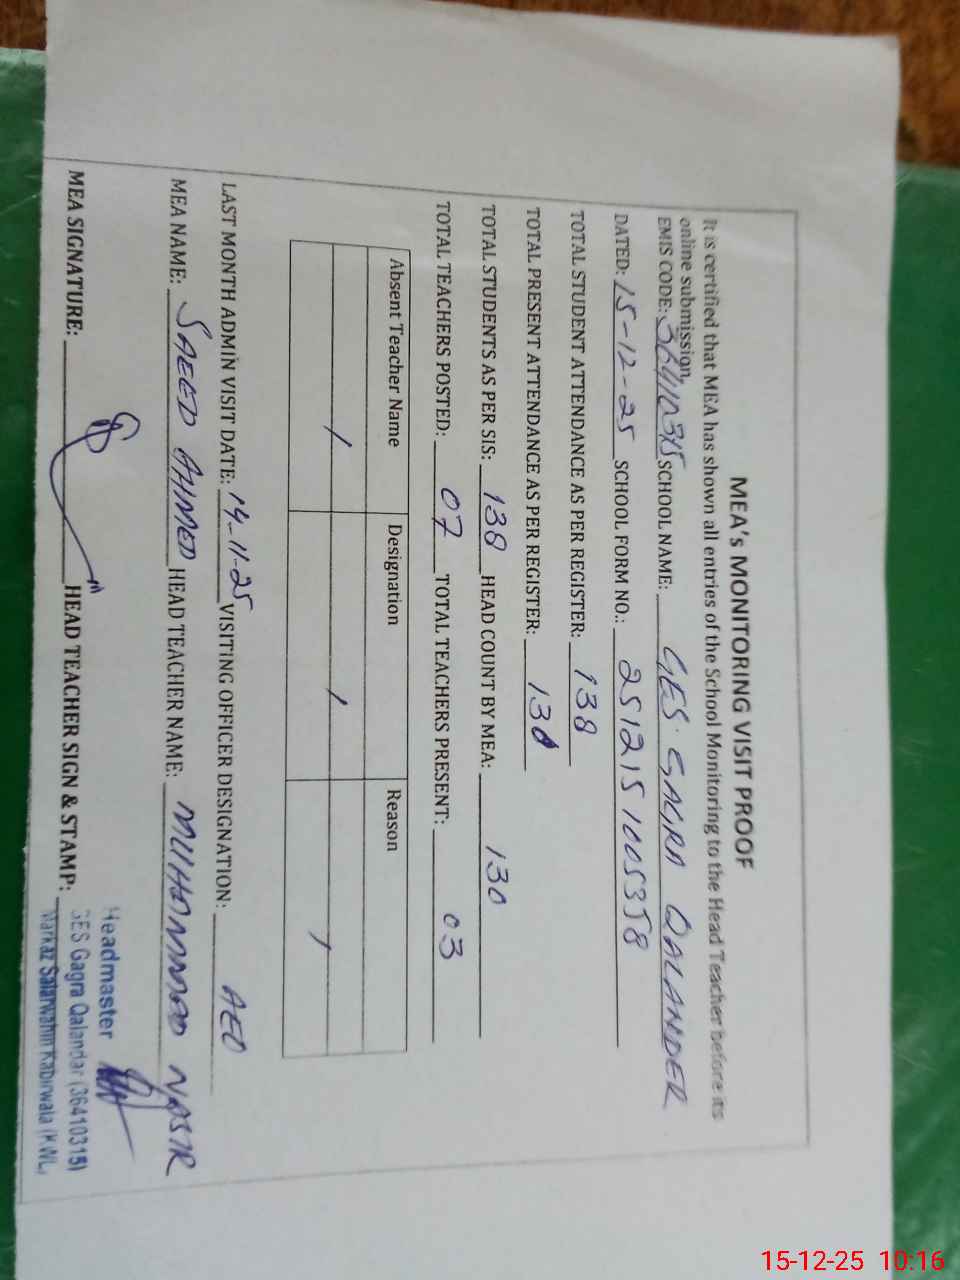 MEA's MONITORING VISIT PROOF
It is certified that MEA has shown all entries of the School Monitoring to the Head Teacher before its
online submission.
EMIS CODE: 36410315 SCHOOL NAME: GES GAGRA QALANDER
DATED: 15-12-25 SCHOOL FORM NO.: 251215 1005358
TOTAL STUDENT ATTENDANCE AS PER REGISTER: 138
TOTAL PRESENT ATTENDANCE AS PER REGISTER: 130
TOTAL STUDENTS AS PER SIS: 138 HEAD COUNT BY MEA: 130
TOTAL TEACHERS POSTED: 07 TOTAL TEACHERS PRESENT: 03
Absent Teacher Name Designation Reason
/ / /
LAST MONTH ADMIN VISIT DATE: 14-11-25 VISITING OFFICER DESIGNATION: AEO
MEA NAME: SAEED AHMED HEAD TEACHER NAME: MUHAMMAD NASIR
MEA SIGNATURE: HEAD TEACHER SIGN & STAMP:
Headmaster
GES Gagra Qalandar (36410315)
Markaz Salarwahin Kabirwala (KWL)
15-12-25 10:16